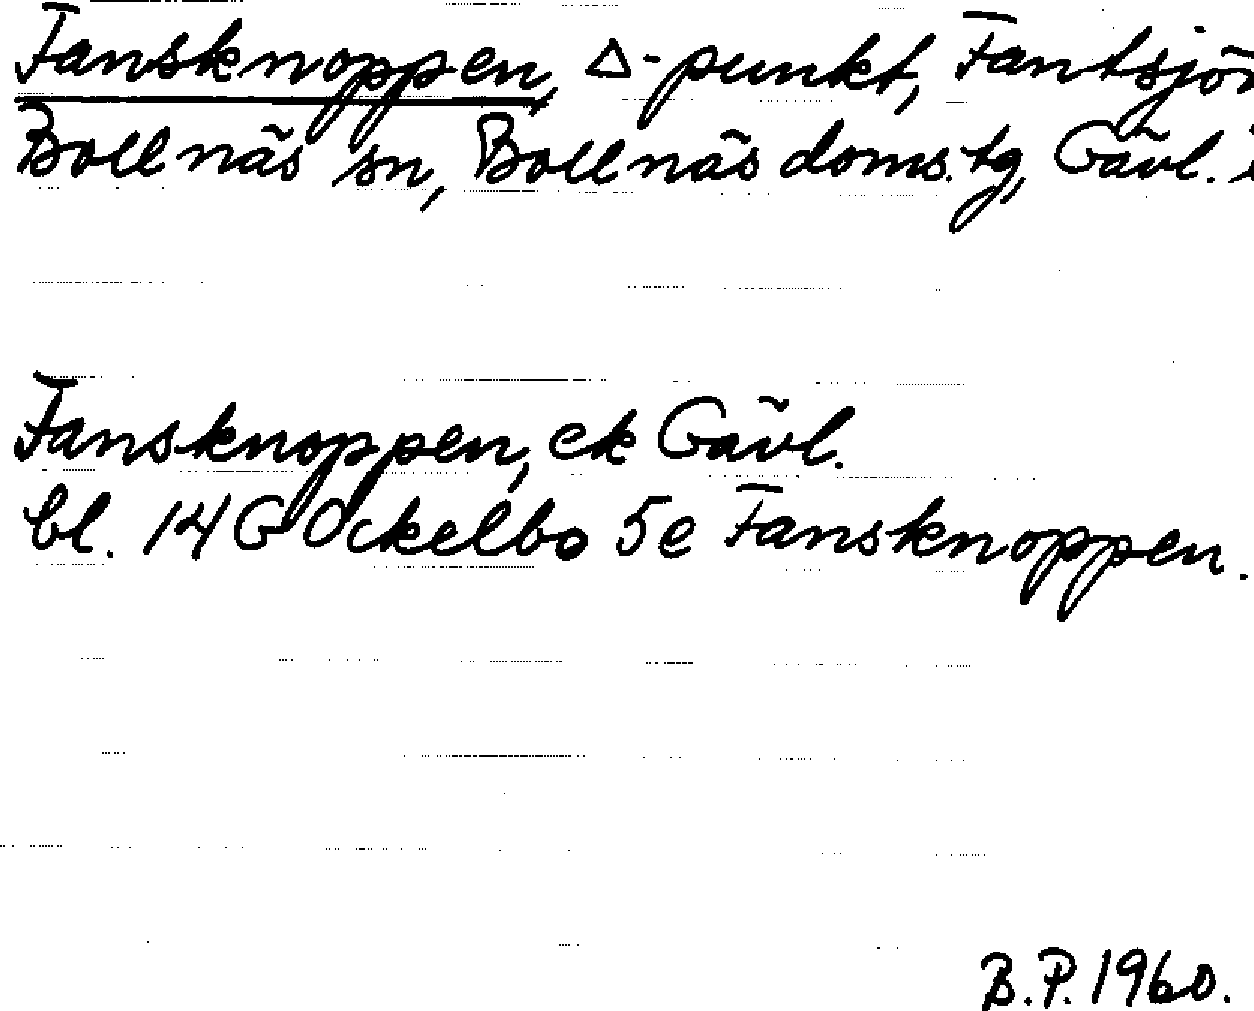 Fansknoppen, Δ-punkt, Fantsjön
Bollnäs sn, Bollnäs doms.tg, Gävl.
Fansknoppen, ek Gävl.
bl. 14G Ockelbo 5e Fansknoppen.
B.P. 1960.